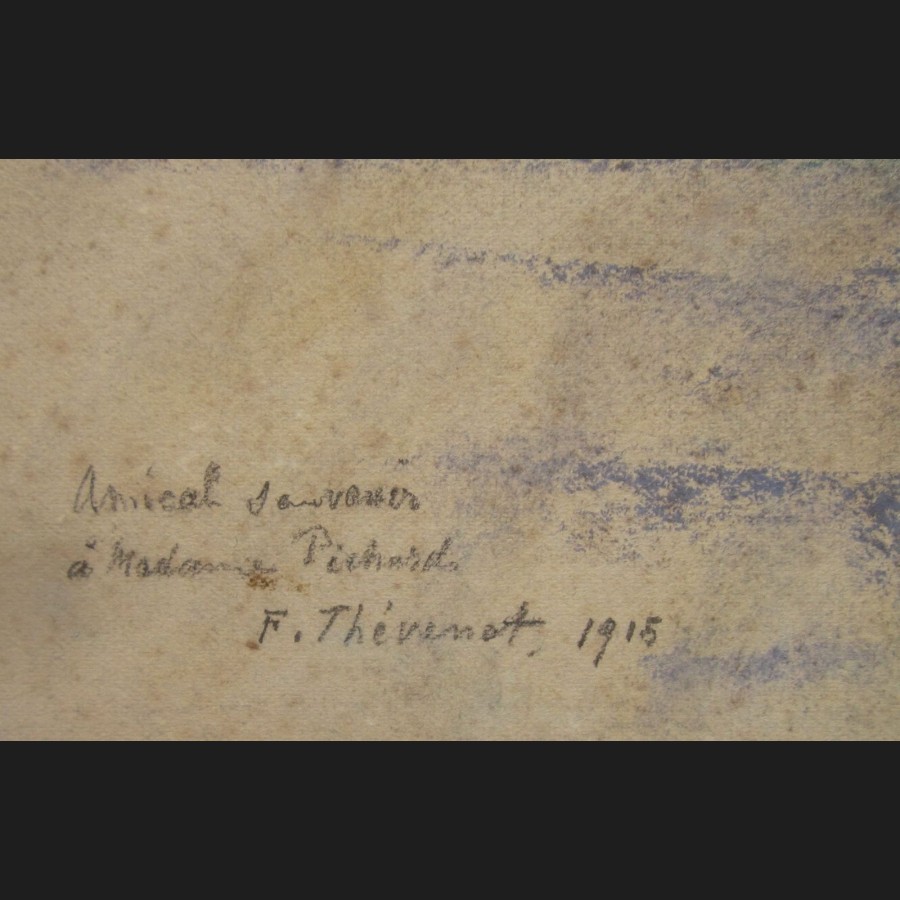 Amical souvenir
à Madame Pichard.
F. Thévenot, 1915